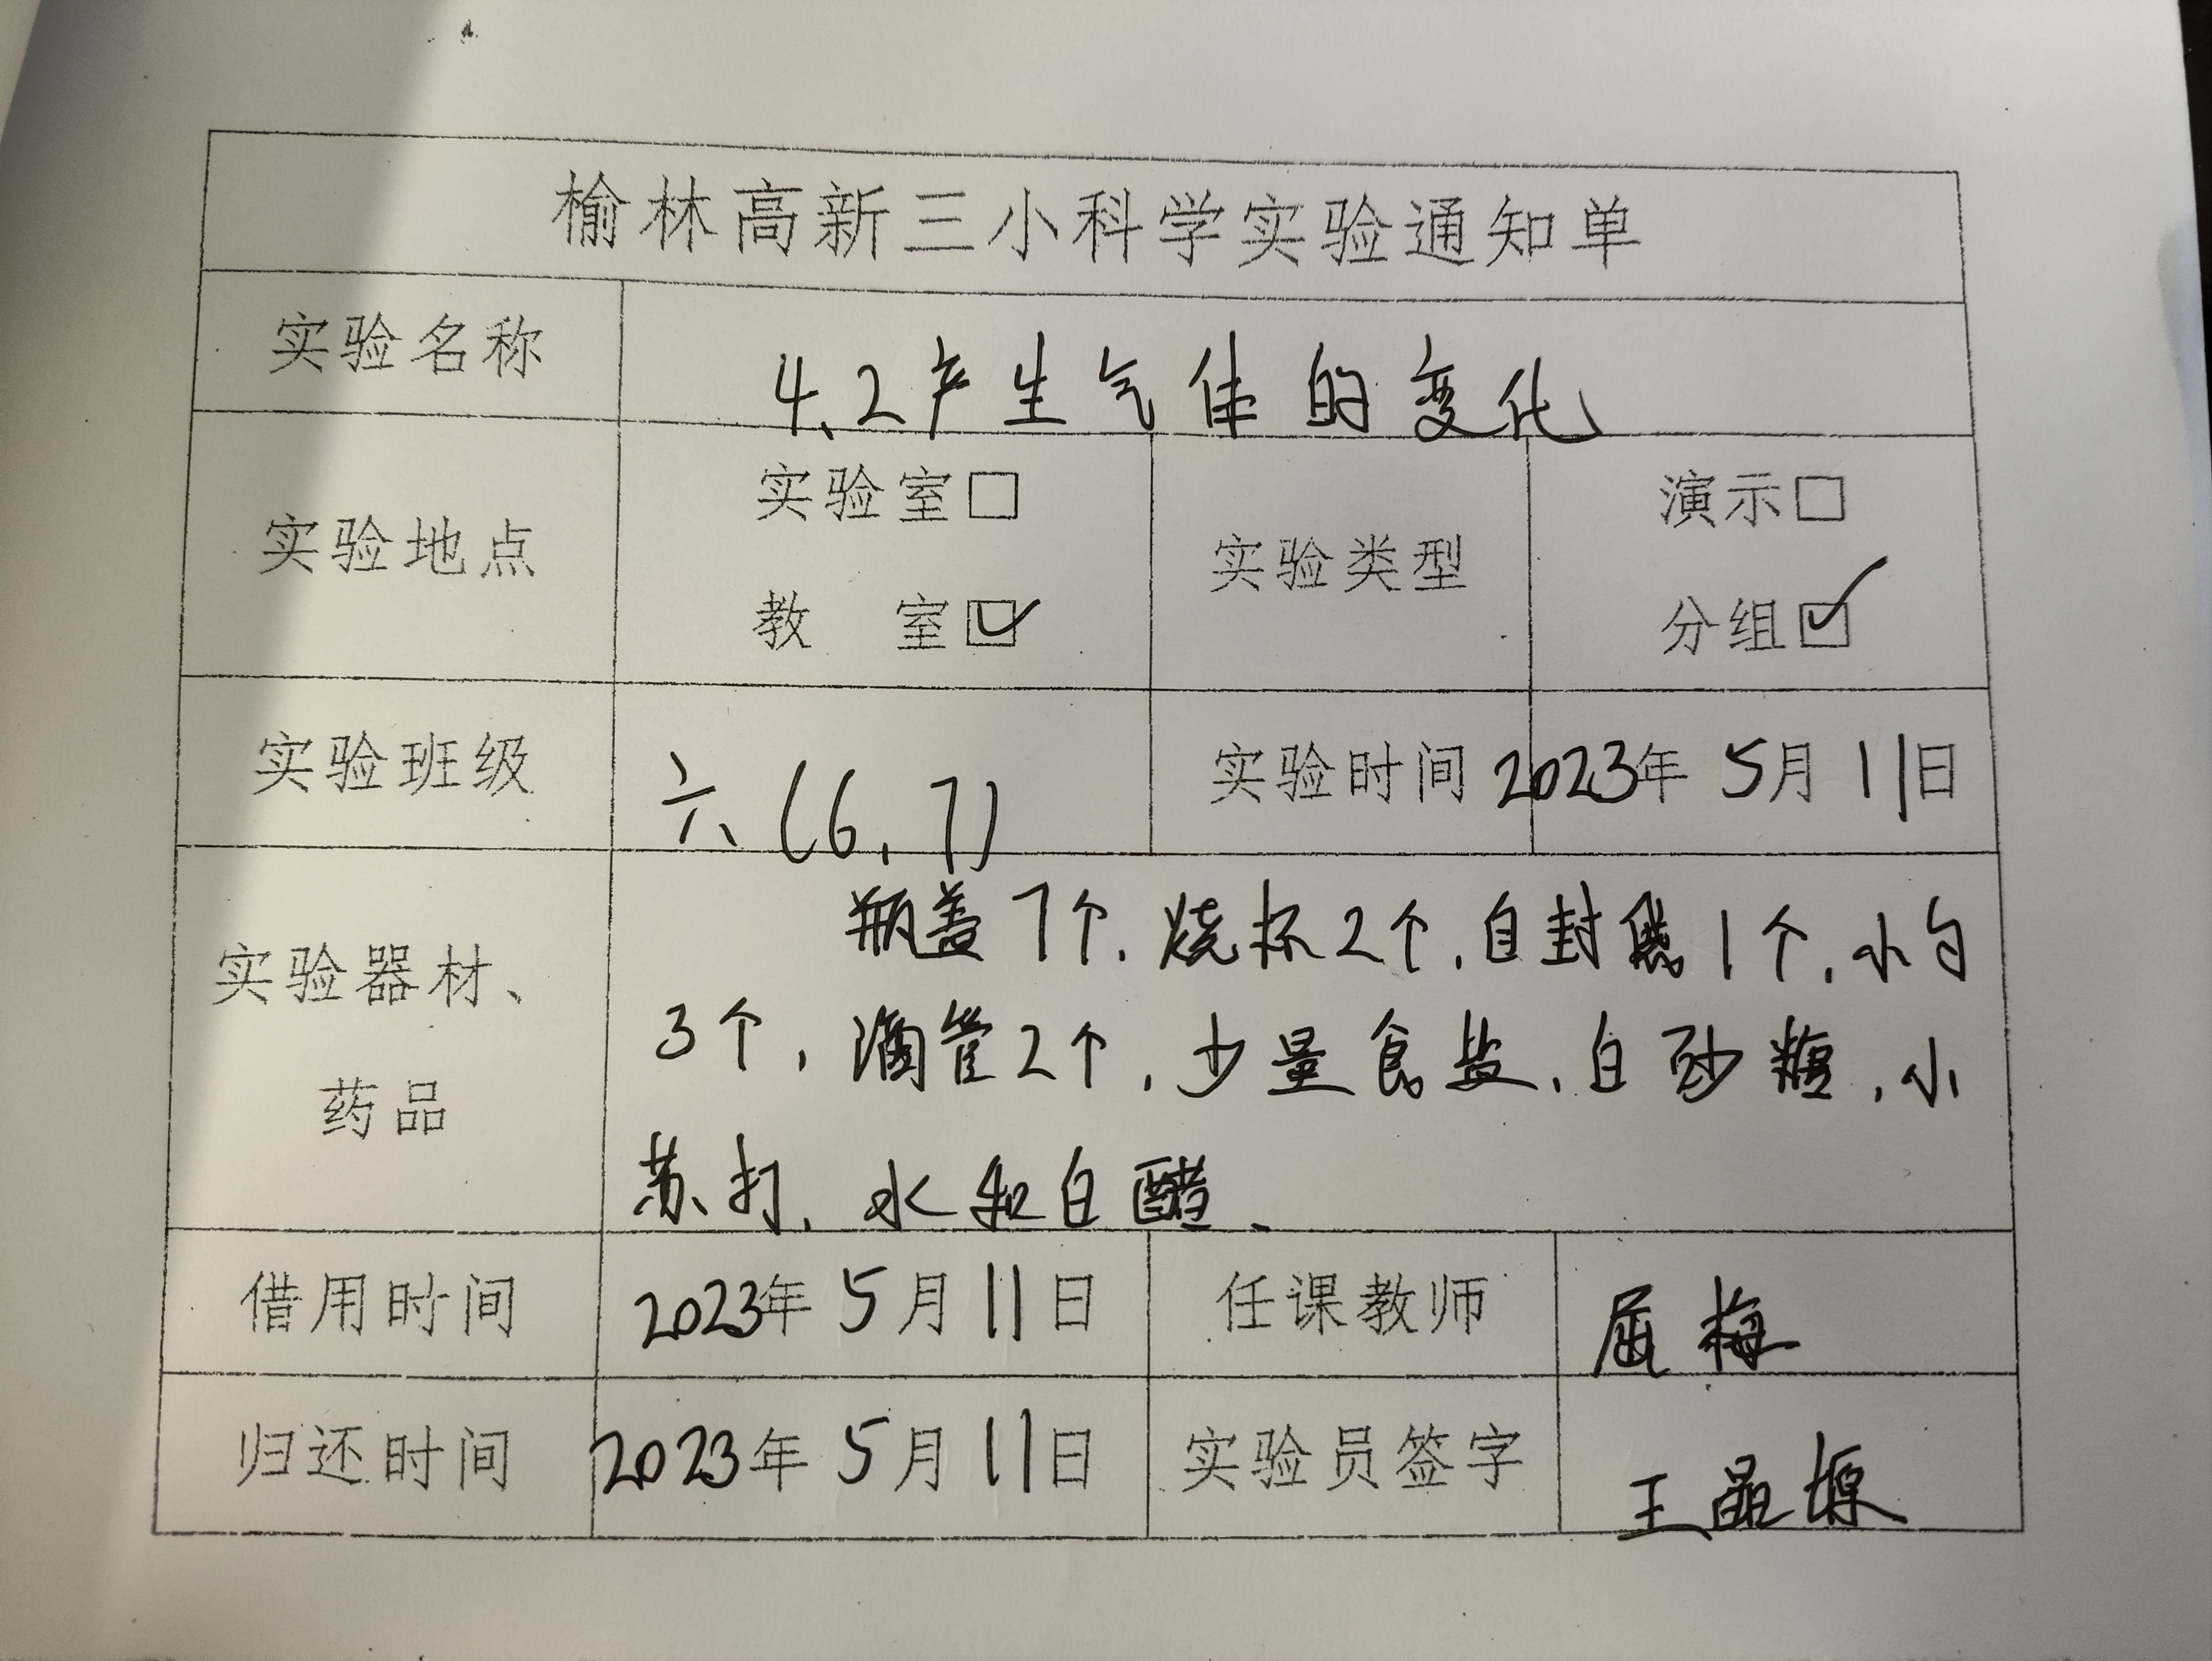 榆林高新三小科学实验通知单
实验名称 4.2产生气体的变化
实验地点 实验室□ 实验类型 演示□
教 室☑ 分组☑
实验班级 六(6,7) 实验时间 2023年 5月 11日
实验器材、药品
瓶盖7个,烧杯2个,自封袋1个,小勺
3个,滴管2个,少量食盐、白砂糖,小
苏打、水和白醋、
借用时间 2023年 5月 11日 任课教师 屈梅
归还时间 2023年 5月 11日 实验员签字 王晶